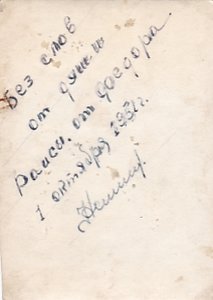 Без слов
от души
Раиси. от Федора.
1 октября 1951г.